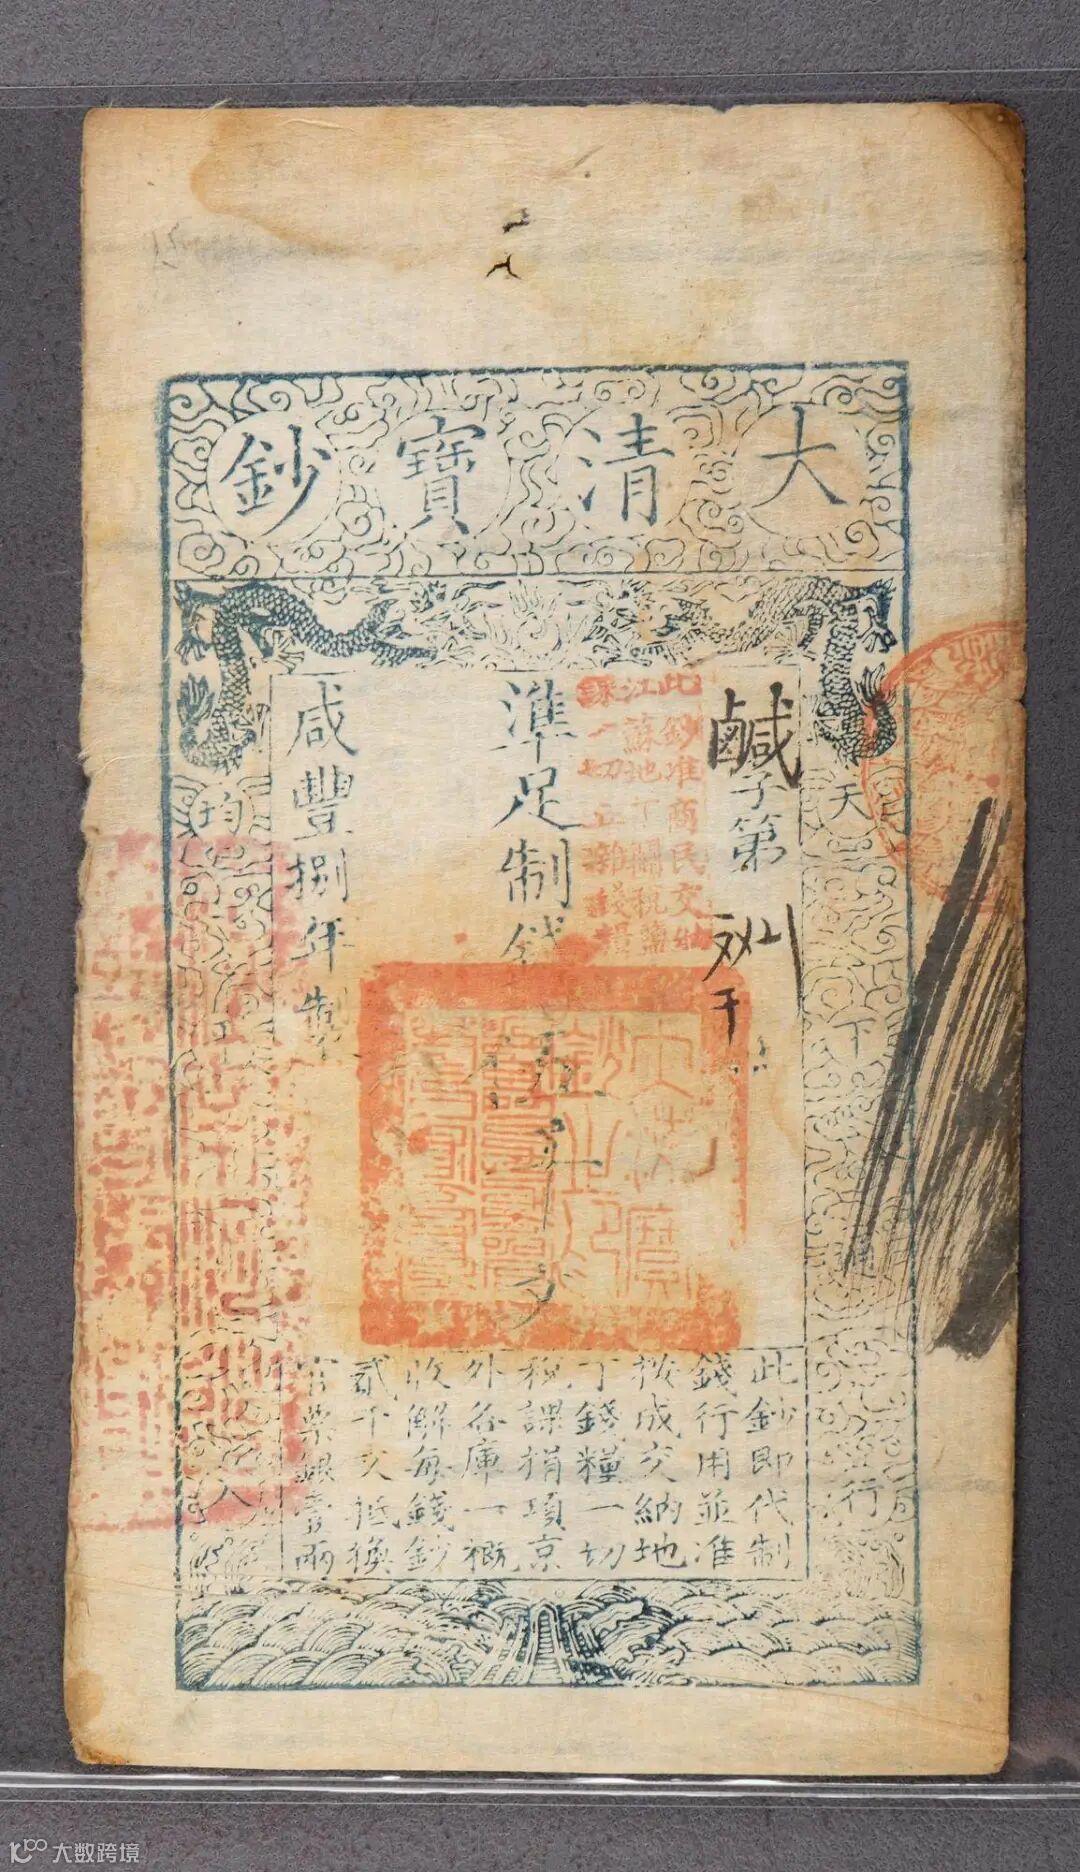 大清寶鈔
天下
並行
鹹字第
此鈔准商民交納
江蘇地丁關稅鹽
課一切正雜錢糧
準足制錢伍千文
咸豐捌年製
均平
出入
大清寶鈔之印
此鈔即代制
錢行用並准
按成交納地
丁錢糧一切
稅課捐項京
外各庫一概
收解每錢鈔
貳千文抵換
官票銀壹兩
大数跨境